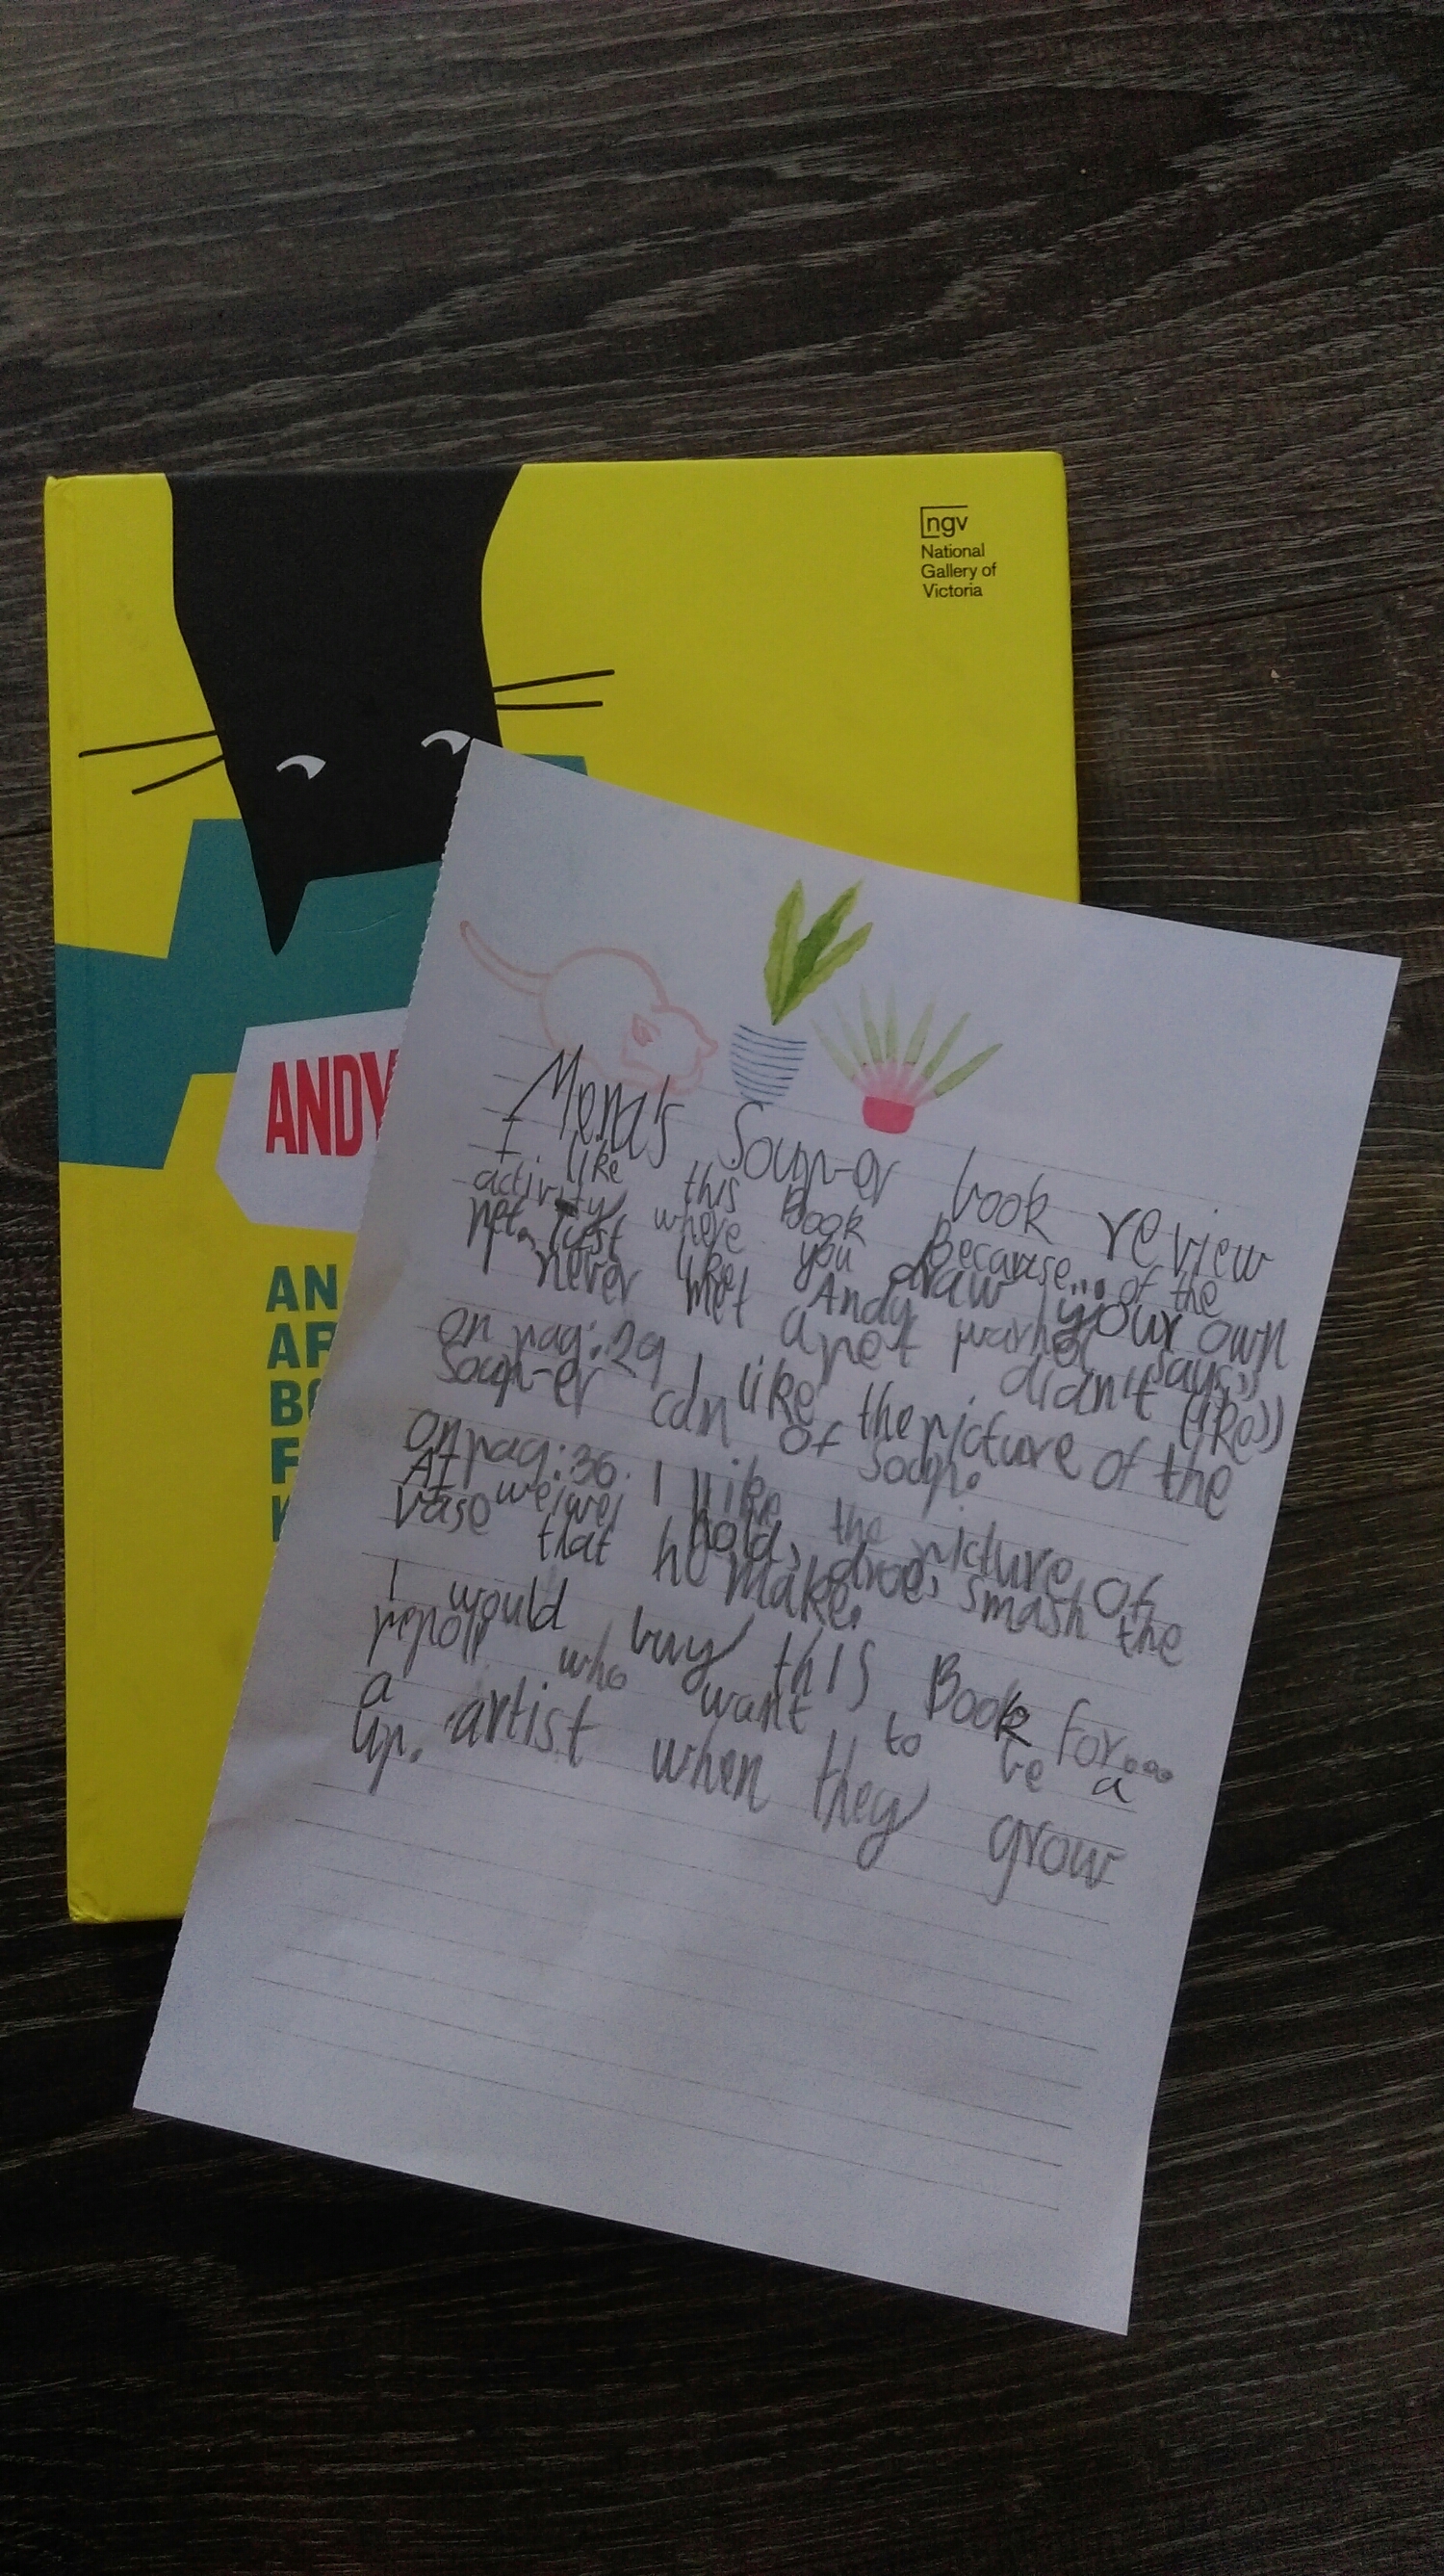 ngv
National
Gallery of
Victoria
ANDY
AN
AR
BO
F
K
Mena's Soup-er book review
I like this Book Because... of the
activity where you draw your own
pet. Just like Andy warhol says,
"I never met a pet I didn't like"
on pag:29 I like the picture of the
Soup-er can of soup.
on pag:36. I like the picture of
Ai weiwei hold, drop, smash the
vase that he make.
I would buy this Book for...
who want to be a
a artist when they grow
up.